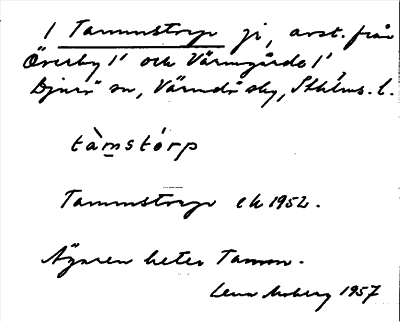 1 Tammstorp gi, avst. från
Överby 1' och Värmgårde 1'
Djurö sn, Värmdö skg, Sthlms. l.
tàmstórp
Tammstorp ek 1952.
Ägaren heter Tamm.
Lena Moberg 1957